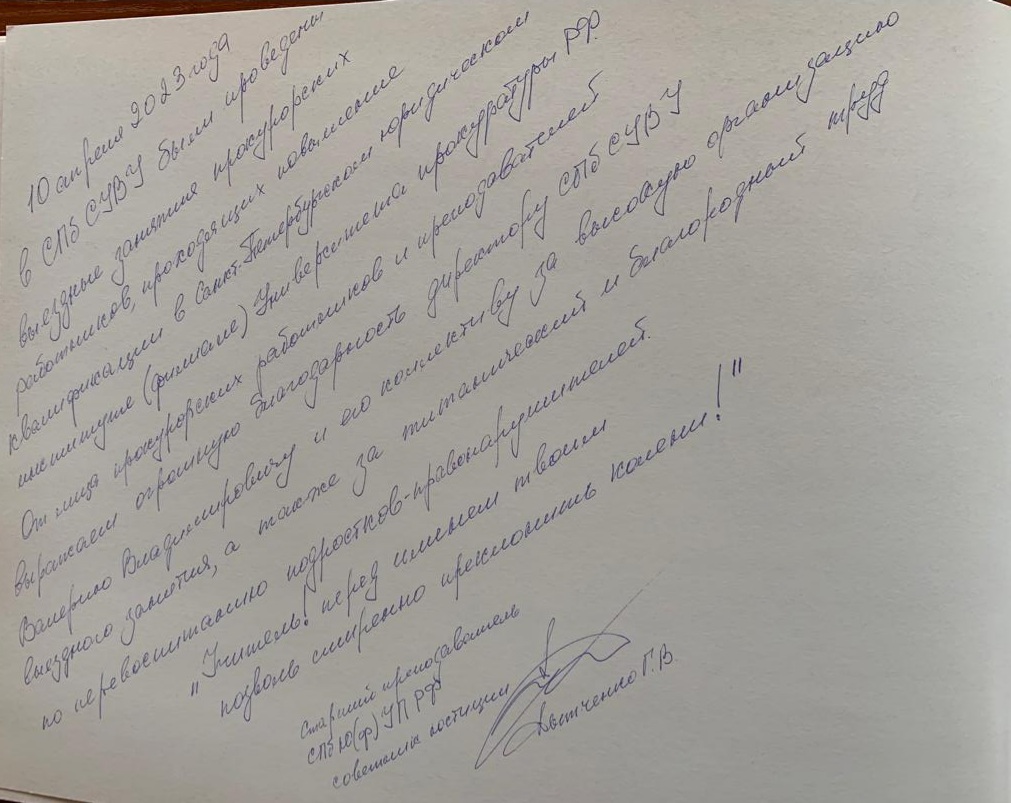 10 апреля 2023 года
в СПб СУВУ были проведены
выездные занятия прокурорских
работников, проходящих повышение
квалификации в Санкт-Петербургском юридическом
институте (филиале) Университета прокуратуры РФ.
От лица прокурорских работников и преподавателей
выражаем огромную благодарность директору СПб СУВУ
Валерию Владимировичу и его коллективу за высокую организацию
выездного занятия, а также за титанический и благородный труд
по перевоспитанию подростков-правонарушителей.
"Учитель! перед именем твоим
позволь смиренно преклонить колени!"
Старший преподаватель
СПбЮ(ф)УПРФ
советник юстиции
Г.В